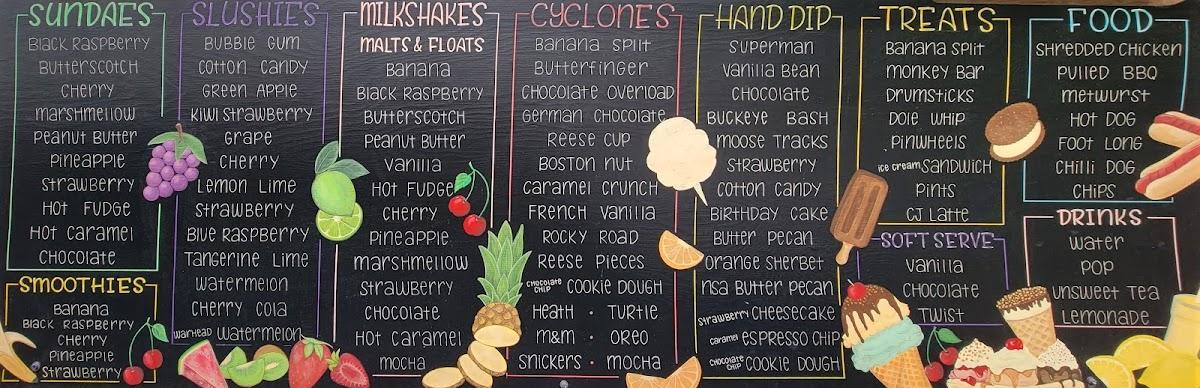 SUNDAES
BLACK RASPBERRY
BUTTERSCOTCH
CHERRY
MARSHMELLOW
PEANUT BUTTER
PINEAPPLE
STRAWBERRY
HOT FUDGE
HOT CARAMEL
CHOCOLATE
SMOOTHIES
BANANA
BLACK RASPBERRY
CHERRY
PINEAPPLE
STRAWBERRY
SLUSHIES
BUBBLE GUM
COTTON CANDY
GREEN APPLE
KIWI STRAWBERRY
GRAPE
CHERRY
LEMON LIME
STRAWBERRY
BLUE RASPBERRY
TANGERINE LIME
WATERMELON
CHERRY COLA
WARHEAD WATERMELON
MILKSHAKES
MALTS & FLOATS
BANANA
BLACK RASPBERRY
BUTTERSCOTCH
PEANUT BUTTER
VANILLA
HOT FUDGE
CHERRY
PINEAPPLE
MARSHMELLOW
STRAWBERRY
CHOCOLATE
HOT CARAMEL
MOCHA
CYCLONES
BANANA SPLIT
BUTTERFINGER
CHOCOLATE OVERLOAD
GERMAN CHOCOLATE
REESE CUP
BOSTON NUT
CARAMEL CRUNCH
FRENCH VANILLA
ROCKY ROAD
REESE PIECES
CHOCOLATE CHIP COOKIE DOUGH
HEATH · TURTLE
M&M · OREO
SNICKERS · MOCHA
HAND DIP
SUPERMAN
VANILLA BEAN
CHOCOLATE
BUCKEYE BASH
MOOSE TRACKS
STRAWBERRY
COTTON CANDY
BIRTHDAY CAKE
BUTTER PECAN
ORANGE SHERBET
NSA BUTTER PECAN
STRAWBERRY CHEESECAKE
CARAMEL ESPRESSO CHIP
CHOCOLATE CHIP COOKIE DOUGH
TREATS
BANANA SPLIT
MONKEY BAR
DRUMSTICKS
DOLE WHIP
PINWHEELS
ICE CREAM SANDWICH
PINTS
CJ LATTE
SOFT SERVE
VANILLA
CHOCOLATE
TWIST
FOOD
SHREDDED CHICKEN
PULLED BBQ
METWURST
HOT DOG
FOOT LONG
CHILLI DOG
CHIPS
DRINKS
WATER
POP
UNSWEET TEA
LEMONADE